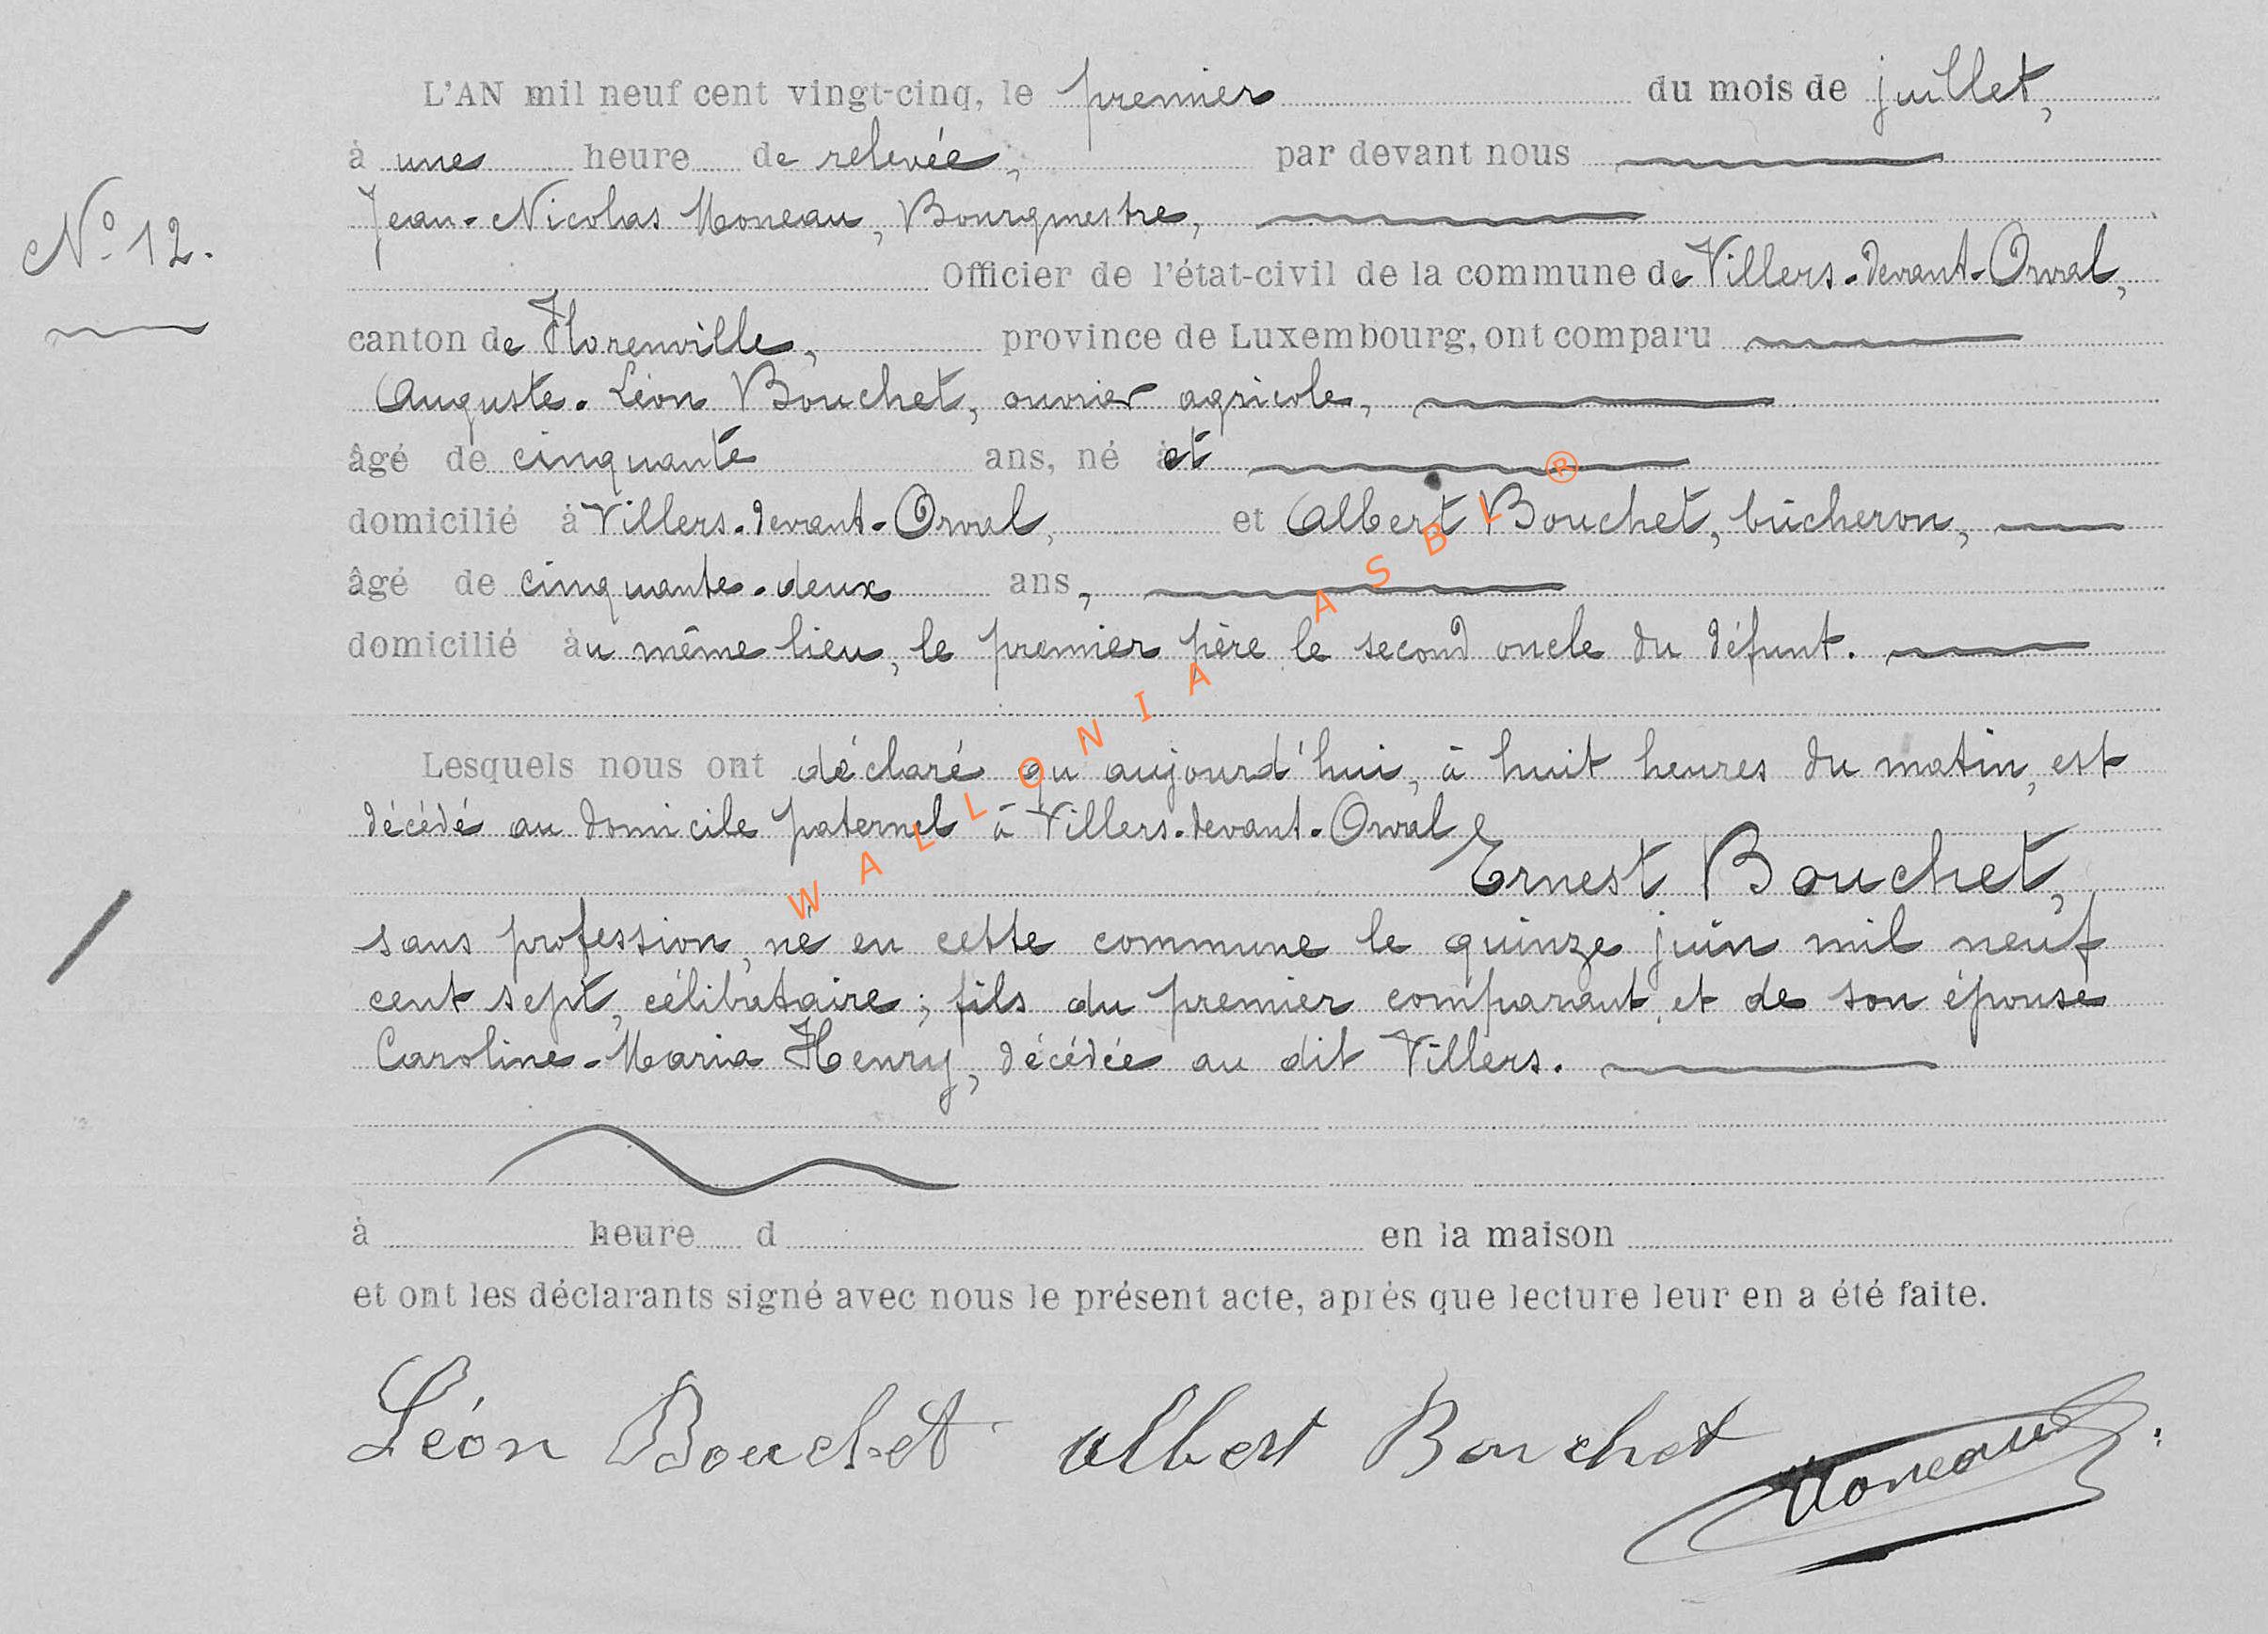 L'AN mil neuf cent vingt-cinq, le premier du mois de juillet,
à une heure de relevée, par devant nous
Jean-Nicolas Moneau, Bourgmestre,
N° 12.
Officier de l'état-civil de la commune de Villers-devant-Orval,
canton de Florenville, province de Luxembourg, ont comparu
Auguste-Léon Bouchet, ouvrier agricole,
âgé de cinquante ans, né et
domicilié à Villers-devant-Orval, et Albert Bouchet, bûcheron,
âgé de cinquante-deux ans,
domicilié au même lieu, le premier père le second oncle du défunt.
Lesquels nous ont déclaré qu'aujourd'hui, à huit heures du matin, est
décédé au domicile paternel à Villers-devant-Orval
Ernest Bouchet,
sans profession, né en cette commune le quinze juin mil neuf
cent sept, célibataire; fils du premier comparant, et de son épouse
Caroline-Maria Henry, décédée au dit Villers.
à heure d en la maison
et ont les déclarants signé avec nous le présent acte, après que lecture leur en a été faite.
Léon Bouchet Albert Bouchet Moneau
WALLONIA ASBL ®